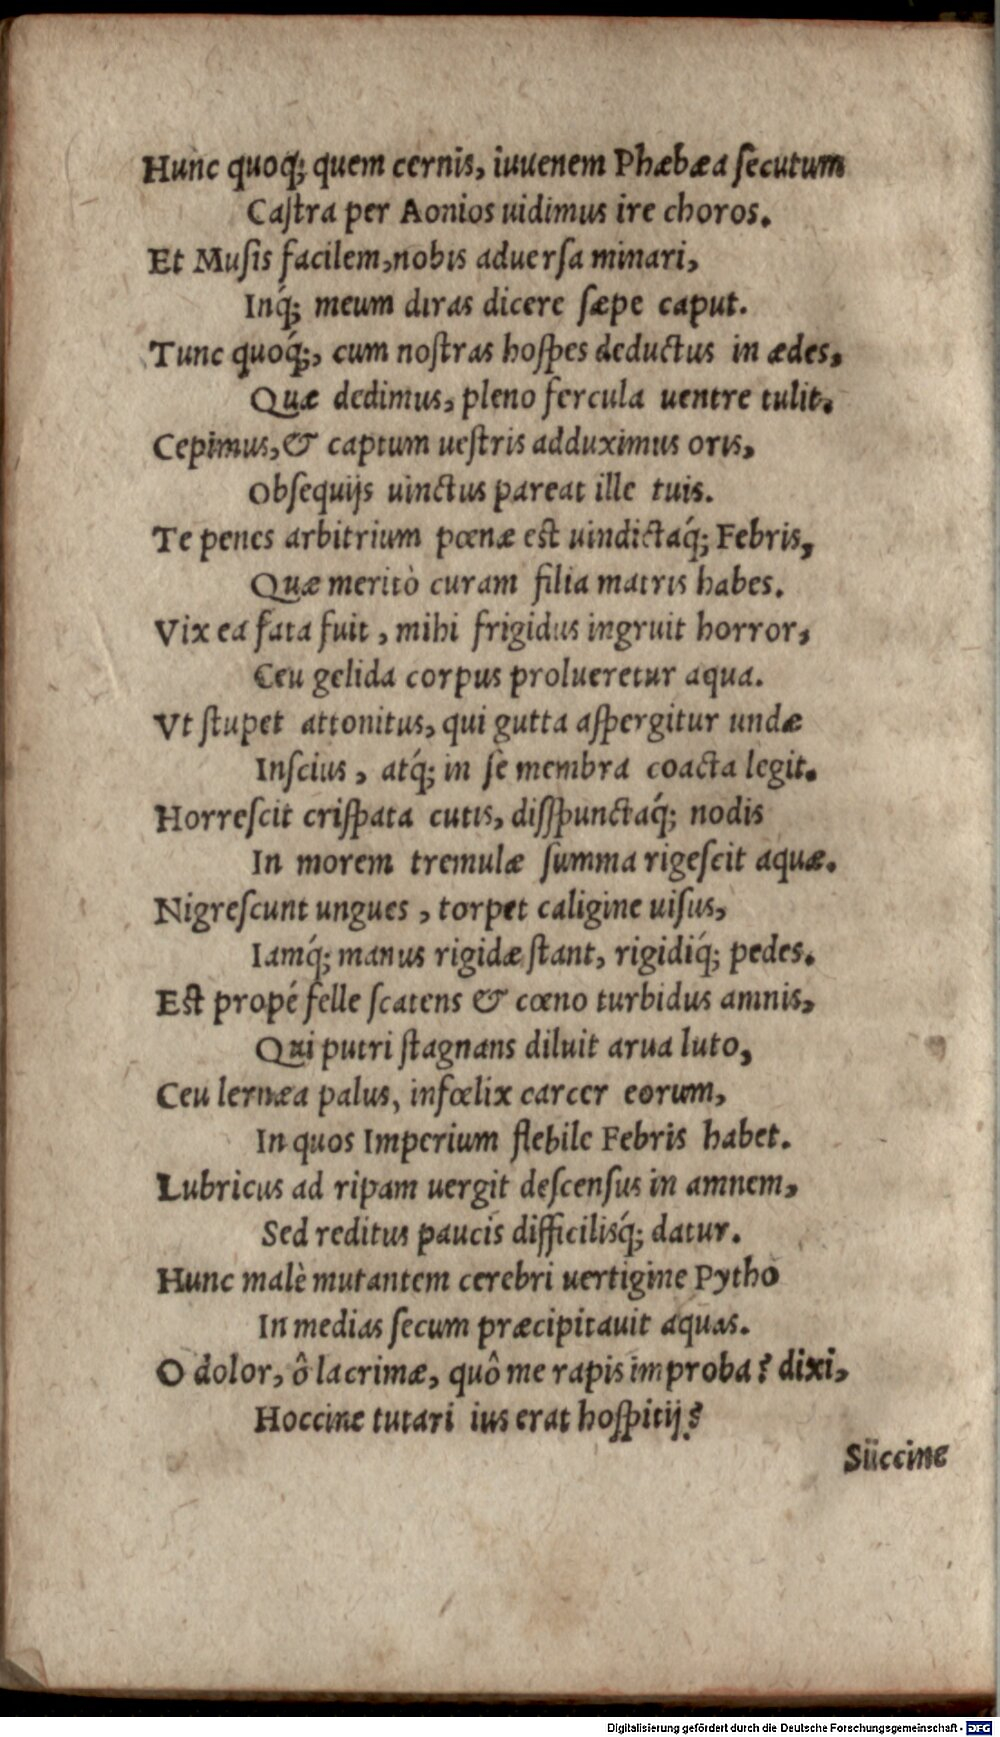 Hunc quoq; quem cernis, iuuenem Phæbæa ſecutum
Caſtra per Aonios uidimus ire choros.
Et Muſis facilem, nobis aduerſa minari,
Inq́; meum diras dicere ſæpe caput.
Tunc quoq́;, cum noſtras hoſpes deductus in ædes,
Quæ dedimus, pleno fercula uentre tulit.
Cepimus, & captum ueſtris adduximus oris,
Obſequijs uinctus pareat ille tuis.
Te penes arbitrium pœnæ eſt uindictaq́; Febris,
Quæ meritò curam filia matris habes.
Vix ea fata fuit, mihi frigidus ingruit horror,
Ceu gelida corpus prolueretur aqua.
Vt ſtupet attonitus, qui gutta aſpergitur undæ
Inſcius, atq́; in ſe membra coacta legit.
Horreſcit criſpata cutis, diſſpunctaq́; nodis
In morem tremulæ ſumma rigeſcit aquæ.
Nigreſcunt ungues, torpet caligine uiſus,
Iamq́; manus rigidæ ſtant, rigidiq́; pedes.
Eſt propé felle ſcatens & cœno turbidus amnis,
Qui putri ſtagnans diluit arua luto,
Ceu lernæa palus, infœlix carcer eorum,
In quos Imperium flebile Febris habet.
Lubricus ad ripam uergit deſcenſus in amnem,
Sed reditus paucis difficilisq́; datur.
Hunc malè mutantem cerebri uertigine Pytho
In medias ſecum præcipitauit aquas.
O dolor, ô lacrimæ, quô me rapis improba? dixi,
Hoccine tutari ius erat hoſpitij?
Süccine
Digitalisierung gefördert durch die Deutsche Forschungsgemeinschaft - DFG